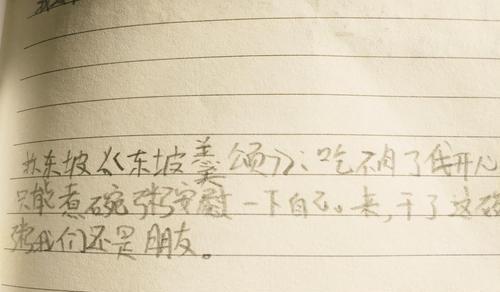 苏东坡《东坡羹颂》：吃不肉了很开心
只能煮碗粥安慰一下自己。来，干了这碗
粥我们还是朋友。